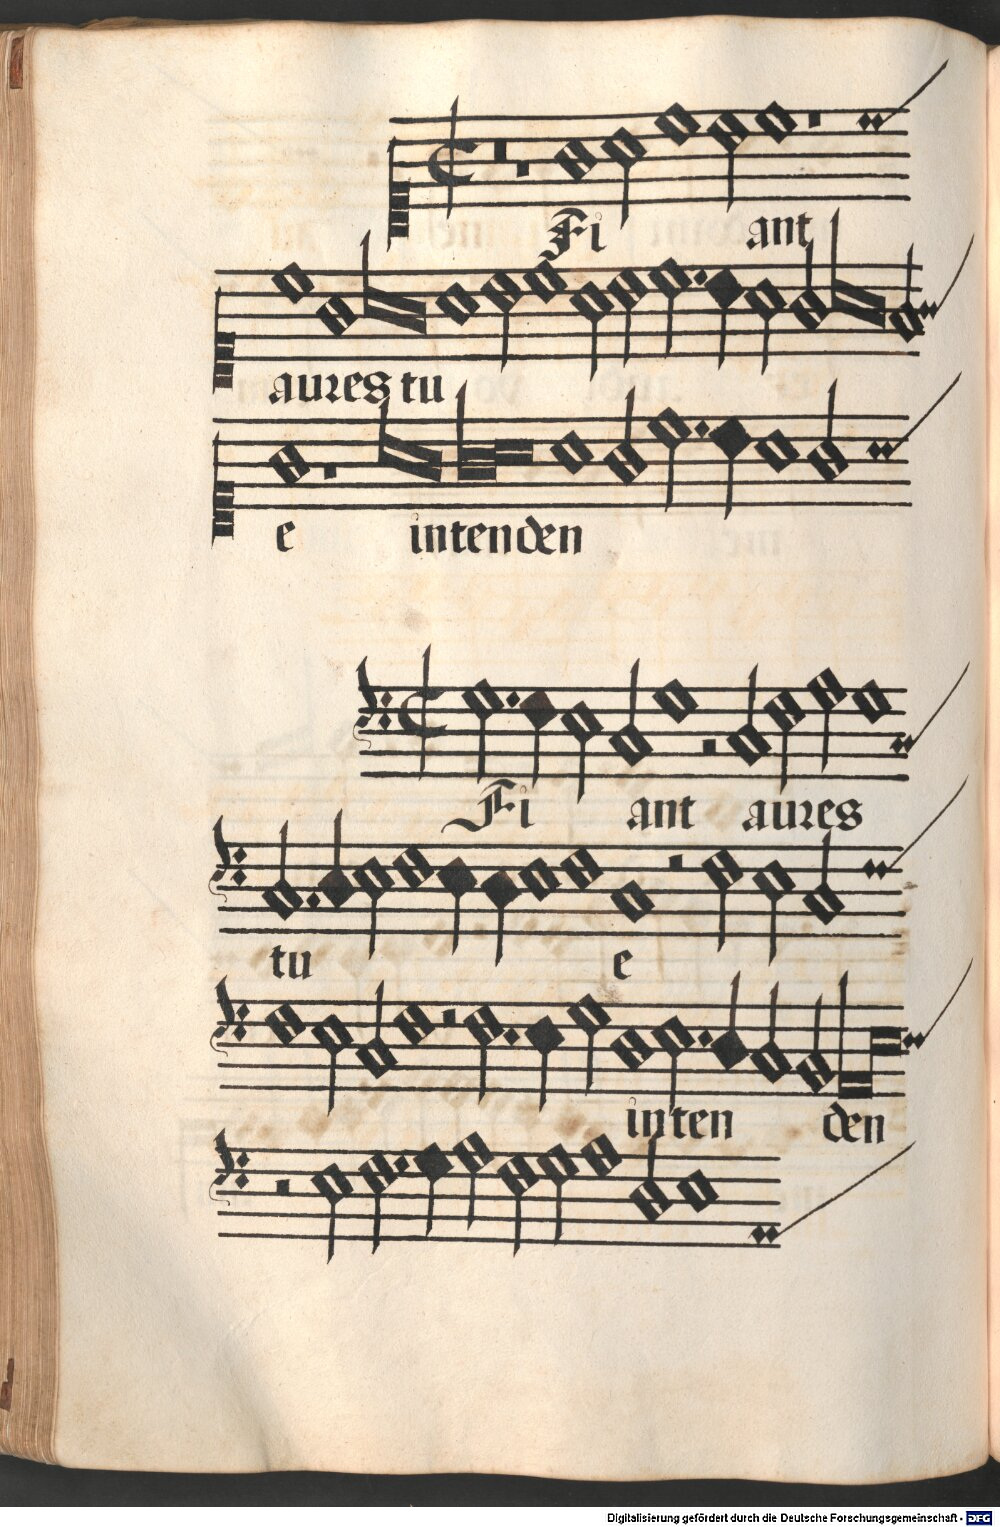 Fi ant
aures tu
e intenden
Fi ant aures
tu e
inten den
Digitalisierung gefördert durch die Deutsche Forschungsgemeinschaft - DFG